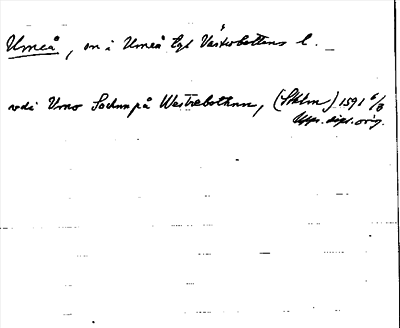 Umeå, sn i Umeå tgl Västerbottens l.
vdi Umo Sochn på Westrebothnn, (Sthlm) 1591 6/8
Upps. dipl. orig.